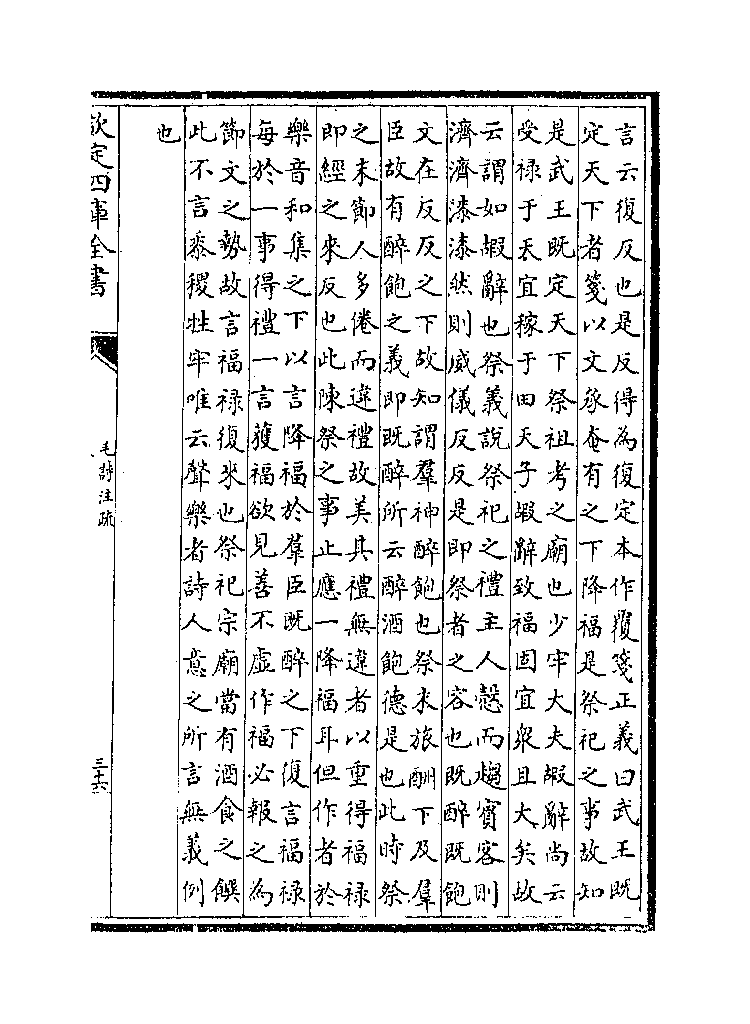 言云復反也是反得為復定本作覆箋正義曰武王既
定天下者箋以文承奄有之下降福是祭祀之事故知
是武王既定天下祭祖考之廟也少牢大夫嘏辭尚云
受祿于天宜稼于田天子嘏辭致福固宜衆且大矣故
云謂如嘏辭也祭義說祭祀之禮主人愨而趨賓客則
濟濟漆漆然則威儀反反是即祭者之容也既醉既飽
文在反反之下故知謂羣神醉飽也祭末旅酬下及羣
臣故有醉飽之義即既醉所云醉酒飽德是也此時祭
之末節人多倦而違禮故美其禮無違者以重得福祿
即經之來反也此陳祭之事止應一降福耳但作者於
樂音和集之下以言降福於羣臣既醉之下復言福祿
每於一事得禮一言獲福欲見善不虛作福必報之為
節文之勢故言福祿復來也祭祀宗廟當有酒食之饌
此不言黍稷牲牢唯云聲樂者詩人意之所言無義例
也
欽定四庫全書
毛詩注疏
三十六